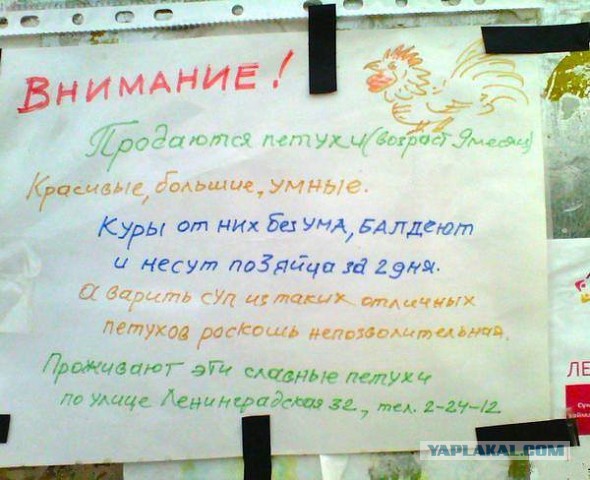 ВНИМАНИЕ!
Продаются петухи (возраст 9 месяц)
Красивые, большие, умные.
Куры от них без ума, балдеют
и несут по 3 яйца за 2 дня.
А варить суп из таких отличных
петухов роскошь непозволительная.
Проживают эти славные петухи
по улице Ленинградская 32, тел. 2-24-12
ЛЕ
YAPLAKAL.COM